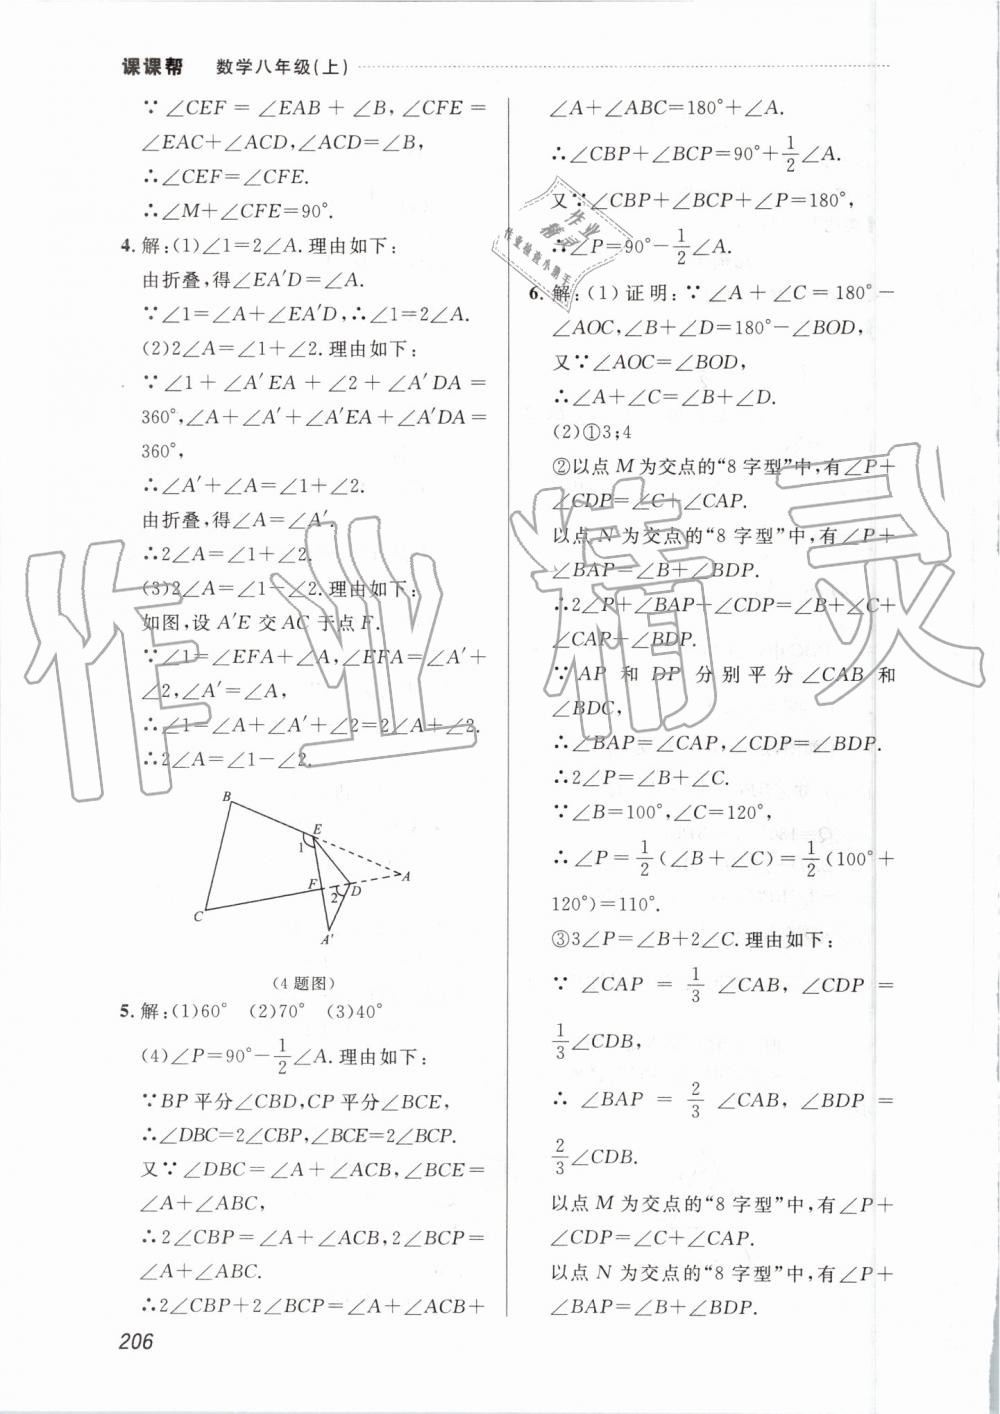 课课帮 数学八年级(上)
∵∠CEF=∠EAB+∠B,∠CFE=
∠EAC+∠ACD,∠ACD=∠B,
∴∠CEF=∠CFE.
∴∠M+∠CFE=90°.
4. 解:(1)∠1=2∠A.理由如下:
由折叠,得∠EA′D=∠A.
∵∠1=∠A+∠EA′D,∴∠1=2∠A.
(2)2∠A=∠1+∠2.理由如下:
∵∠1+∠A′EA+∠2+∠A′DA=
360°,∠A+∠A′+∠A′EA+∠A′DA=
360°,
∴∠A′+∠A=∠1+∠2.
由折叠,得∠A=∠A′.
∴2∠A=∠1+∠2.
(3)2∠A=∠1-∠2.理由如下:
如图,设A′E交AC于点F.
∵∠1=∠EFA+∠A,∠EFA=∠A′+
∠2,∠A′=∠A,
∴∠1=∠A+∠A′+∠2=2∠A+∠2.
∴2∠A=∠1-∠2.
B
E
1
A
F
D
2
C
A′
(4题图)
5. 解:(1)60° (2)70° (3)40°
(4)∠P=90°-1/2∠A.理由如下:
∵BP平分∠CBD,CP平分∠BCE,
∴∠DBC=2∠CBP,∠BCE=2∠BCP.
又∵∠DBC=∠A+∠ACB,∠BCE=
∠A+∠ABC,
∴2∠CBP=∠A+∠ACB,2∠BCP=
∠A+∠ABC.
∴2∠CBP+2∠BCP=∠A+∠ACB+
∠A+∠ABC=180°+∠A.
∴∠CBP+∠BCP=90°+1/2∠A.
又∵∠CBP+∠BCP+∠P=180°,
∴∠P=90°-1/2∠A.
6. 解:(1)证明:∵∠A+∠C=180°-
∠AOC,∠B+∠D=180°-∠BOD,
又∵∠AOC=∠BOD,
∴∠A+∠C=∠B+∠D.
(2)①3;4
②以点M为交点的“8字型”中,有∠P+
∠CDP=∠C+∠CAP.
以点N为交点的“8字型”中,有∠P+
∠BAP=∠B+∠BDP.
∴2∠P+∠BAP+∠CDP=∠B+∠C+
∠CAP+∠BDP.
∵AP和DP分别平分∠CAB和
∠BDC,
∴∠BAP=∠CAP,∠CDP=∠BDP.
∴2∠P=∠B+∠C.
∵∠B=100°,∠C=120°,
∴∠P=1/2(∠B+∠C)=1/2(100°+
120°)=110°.
③3∠P=∠B+2∠C.理由如下:
∵∠CAP=1/3∠CAB,∠CDP=
1/3∠CDB,
∴∠BAP=2/3∠CAB,∠BDP=
2/3∠CDB.
以点M为交点的“8字型”中,有∠P+
∠CDP=∠C+∠CAP.
以点N为交点的“8字型”中,有∠P+
∠BAP=∠B+∠BDP.
206
作业精灵
作业
精灵
作业检查小助手